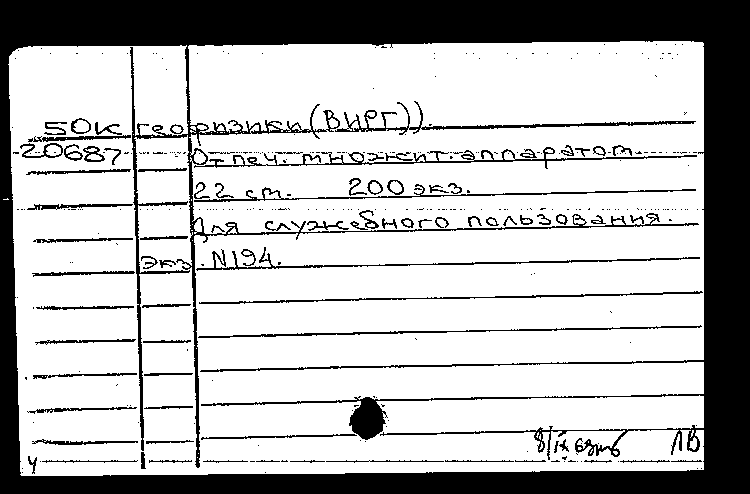 50К геофизики (ВИРГ)).
-20687 Отпеч. множит. аппаратом.
22 cm. 200 экз.
Для служебного пользования.
экз. N194.
8/IX
ЛВ
Ч